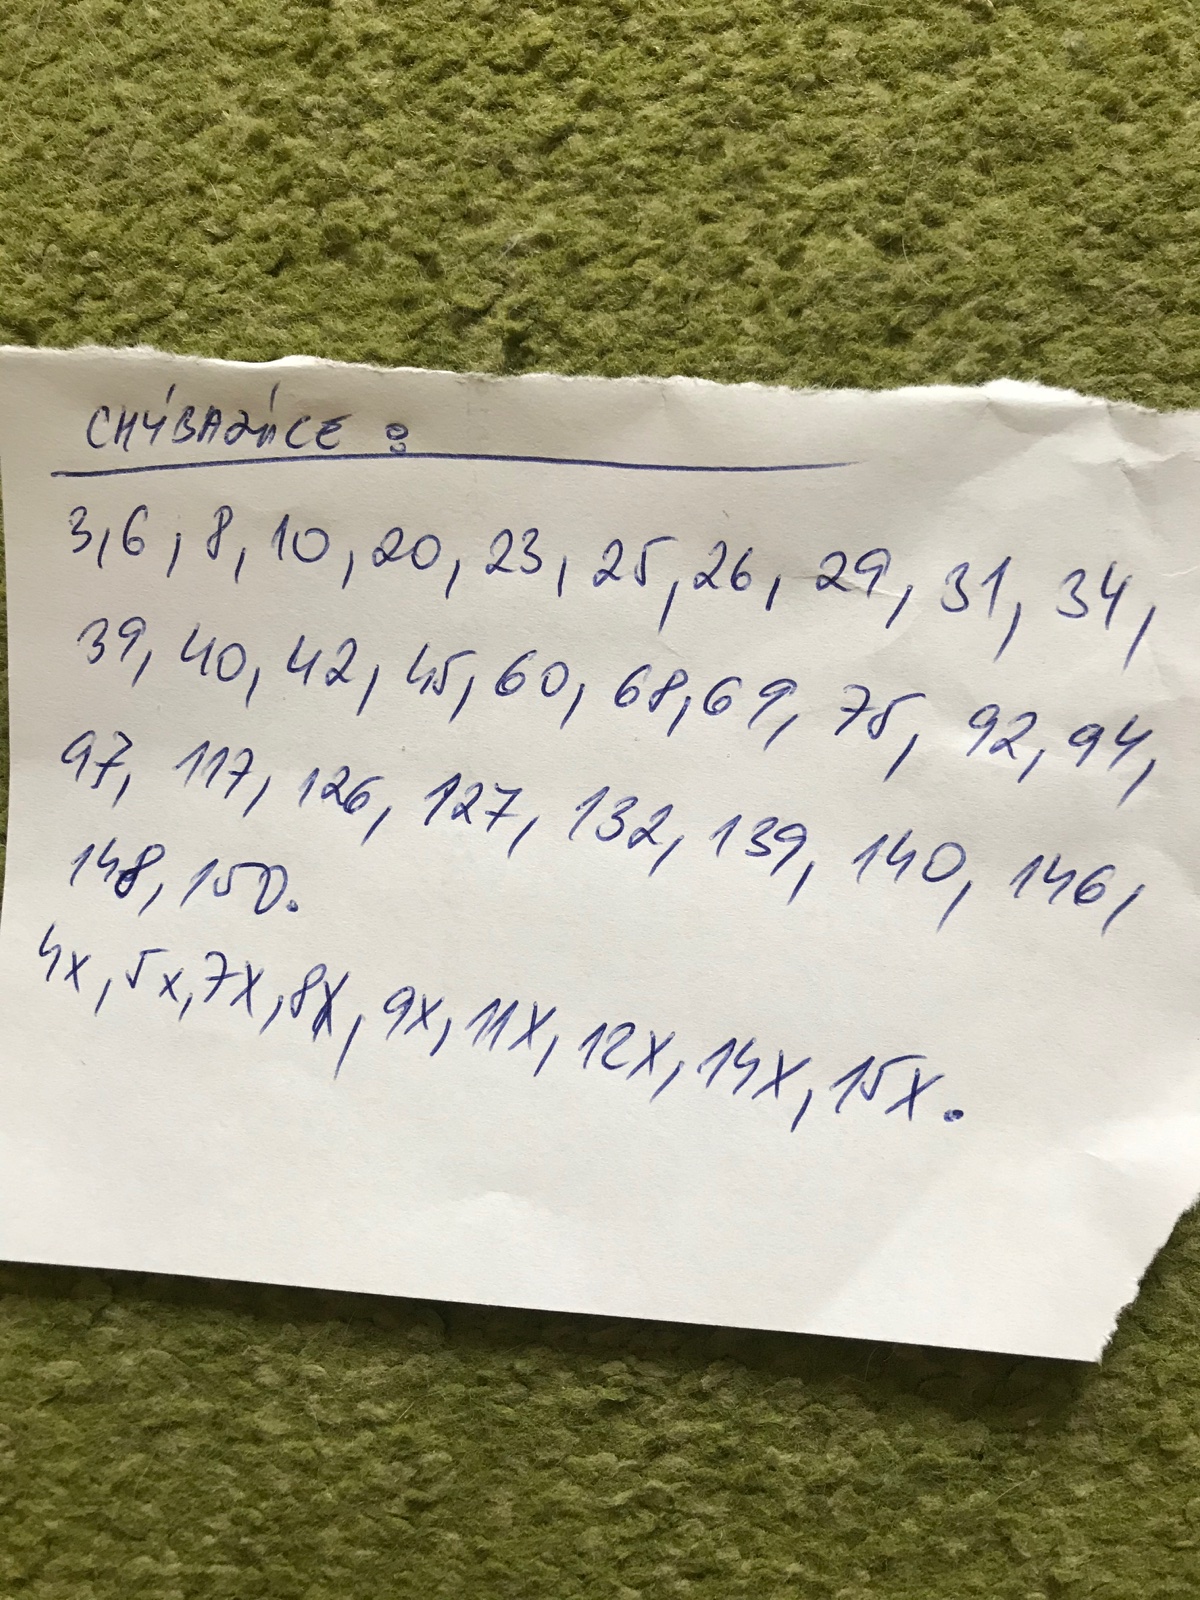 CHÝBAJÚCE :
3, 6, 8, 10, 20, 23, 25, 26, 29, 31, 34,
39, 40, 42, 45, 60, 68, 69, 75, 92, 94,
97, 117, 126, 127, 132, 139, 140, 146,
148, 150.
4x, 5x, 7x, 8x, 9x, 11x, 12x, 14x, 15x.